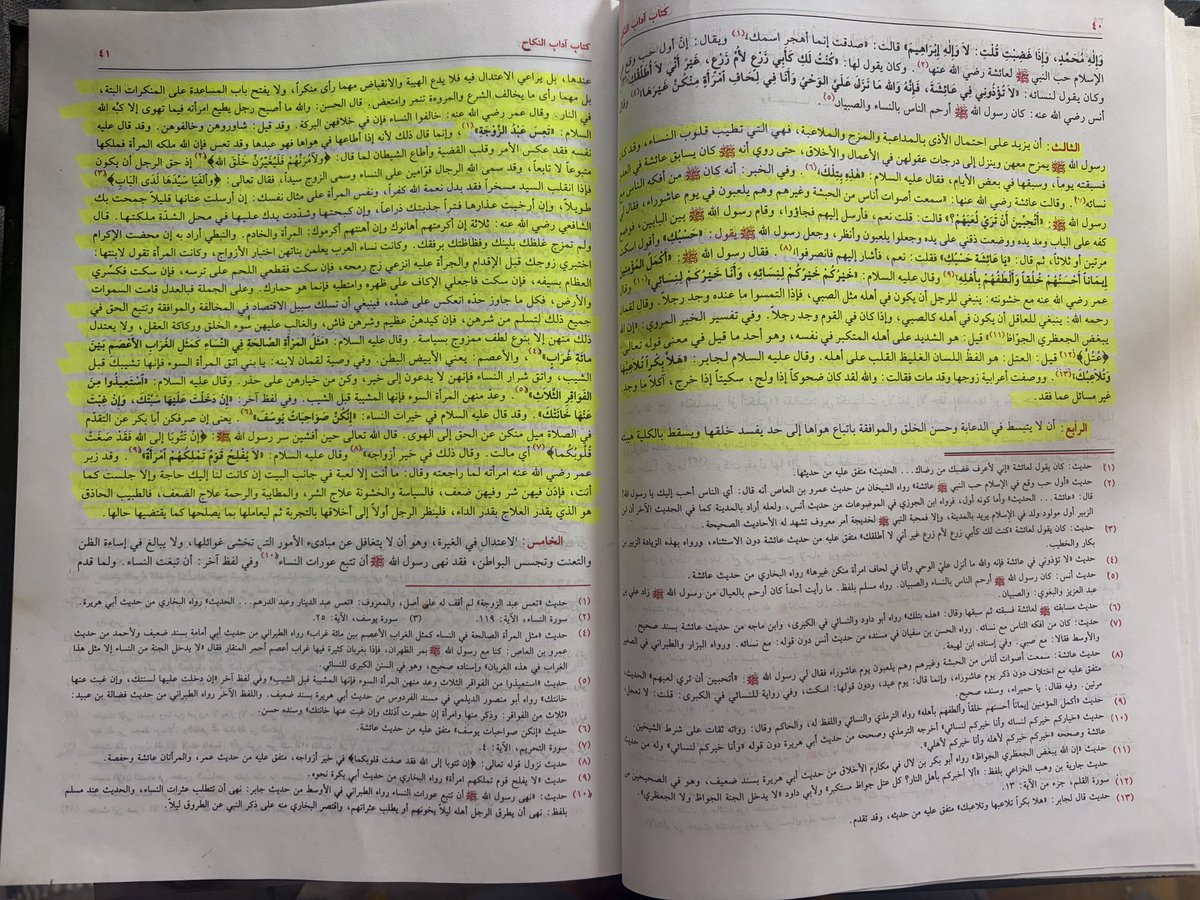 ٤٠
كتاب آداب النكاح
وَإِلٰهِ مُحَمَّدٍ، وَإِذَا غَضِبْتِ قُلْتِ: لاَ وَإِلٰهِ إِبْرَاهِيمَ» قالت: «صدقت إنما أهجر اسمك»(١) ويقال: إنّ أول حب وقع في
الإسلام حب النبي ﷺ لعائشة رضي الله عنها(٢). وكان يقول لها: «كُنْتُ لَكِ كَأَبِي زَرْعٍ لأُمِّ زَرْعٍ، غَيْرَ أَنِّي لاَ أُطَلِّقُكِ»(٣)
وكان يقول لنسائه: «لاَ تُؤْذُونِي فِي عَائِشَةَ، فَإِنَّهُ وَاللهِ مَا نَزَلَ عَلَيَّ الْوَحْيُ وَأَنَا فِي لِحَافِ امْرَأَةٍ مِنْكُنَّ غَيْرِهَا»(٤) وقال
أنس رضي الله عنه: كان رسول الله ﷺ أرحم الناس بالنساء والصبيان(٥)
الثالث: أن يزيد على احتمال الأذى بالمداعبة والمزح والملاعبة، فهي التي تطيب قلوب النساء، وقد كان
رسول الله ﷺ يمزح معهن وينزل إلى درجات عقولهن في الأعمال والأخلاق، حتى روي أنه ﷺ كان يسابق عائشة في العدو
فسبقته يوماً، وسبقها في بعض الأيام، فقال عليه السلام: «هٰذِهِ بِتِلْكَ»(٦). وفي الخبر: أنه كان ﷺ من أفكه الناس مع
نسائه(٧). وقالت عائشة رضي الله عنها: «سمعت أصوات أناس من الحبشة وغيرهم وهم يلعبون في يوم عاشوراء، فقال لي
رسول الله ﷺ: «أَتُحِبِّينَ أَنْ تَرَيْ لَعِبَهُمْ؟» قالت: قلت نعم، فأرسل إليهم فجاؤوا، وقام رسول الله ﷺ بين البابين، فوضع
كفه على الباب ومد يده ووضعت ذقني على يده وجعلوا يلعبون وأنظر، وجعل رسول الله ﷺ يقول: «حَسْبُكِ» وأقول اسكت
مرتين أو ثلاثاً، ثم قال: «يَا عَائِشَةُ حَسْبُكِ» فقلت: نعم، فأشار إليهم فانصرفوا»(٨) فقال رسول الله ﷺ: «أَكْمَلُ الْمُؤْمِنِينَ
إِيمَاناً أَحْسَنُهُمْ خُلُقاً وَأَلْطَفُهُمْ بِأَهْلِهِ»(٩) وقال عليه السلام: «خَيْرُكُمْ خَيْرُكُمْ لِنِسَائِهِ، وَأَنَا خَيْرُكُمْ لِنِسَائِي»(١٠) وقال
عمر رضي الله عنه مع خشونته: ينبغي للرجل أن يكون في أهله مثل الصبي، فإذا التمسوا ما عنده وجد رجلاً. وقال لقمان
رحمه الله: ينبغي للعاقل أن يكون في أهله كالصبي، وإذا كان في القوم وجد رجلاً. وفي تفسير الخبر المروي: «إن الله
يبغض الجعظري الجوّاظ»(١١) قيل: هو الشديد على أهله المتكبر في نفسه وهو أحد ما قيل في معنى قوله تعالى:
﴿عُتُلٍّ﴾(١٢) قيل: العتل: هو الفظ اللسان الغليظ القلب على أهله. وقال عليه السلام لجابر: «هَلاَّ بِكْراً تُلاَعِبُهَا
وَتُلاَعِبُكَ»(١٣). ووصفت أعرابية زوجها وقد مات فقالت: والله لقد كان ضحوكاً إذا ولج، سكيتاً إذا خرج، آكلاً ما وجد
غير مسائل عما فقد.
الرابع: أن لا يتبسط في الدعابة وحسن الخلق والموافقة باتباع هواها إلى حد يفسد خلقها ويسقط بالكلية هيبته
(١) حديث: كان يقول لعائشة «إني لأعرف غضبك من رضاك... الحديث» متفق عليه من حديثها.
(٢) حديث «أول حب وقع في الإسلام حب النبي ﷺ عائشة» رواه الشيخان من حديث عمرو بن العاص أنه قال: أي الناس أحب إليك يا رسول الله؟
قال: «عائشة... الحديث» وأما كونه أول، فرواه ابن الجوزي في الموضوعات من حديث أنس، ولعله أراد بالمدينة كما في الحديث الآخر أن ابن
الزبير أول مولود ولد في الإسلام يريد بالمدينة، وإلا فمحبة النبي ﷺ لخديجة أمر معروف تشهد له الأحاديث الصحيحة.
(٣) حديث: كان يقول لعائشة «كنت لك كأبي زرع لأم زرع غير أني لا أطلقك» متفق عليه من حديث عائشة دون الاستثناء، ورواه بهذه الزيادة الزبير بن
بكار والخطيب.
(٤) حديث «لا تؤذوني في عائشة فإنه والله ما أنزل عليّ الوحي وأنا في لحاف امرأة منكن غيرها» رواه البخاري من حديث عائشة.
(٥) حديث أنس: كان رسول الله ﷺ أرحم الناس بالنساء والصبيان. رواه مسلم بلفظ. ما رأيت أحداً كان أرحم بالعيال من رسول الله ﷺ زاد علي بن
عبد العزيز والبغوي: والصبيان.
(٦) حديث مسابقته ﷺ لعائشة فسبقته ثم سبقها وقال: «هذه بتلك» رواه أبو داود والنسائي في الكبرى، وابن ماجه من حديث عائشة بسند صحيح.
(٧) حديث: كان من أفكه الناس مع نسائه. رواه الحسن بن سفيان في مسنده من حديث أنس دون قوله: مع نسائه. ورواه البزار والطبراني في الصغير
والأوسط فقالا: مع صبي. وفي إسناده ابن لهيعة.
(٨) حديث عائشة: سمعت أصوات أناس من الحبشة وغيرهم وهم يلعبون يوم عاشوراء فقال لي رسول الله ﷺ: «أتحبين أن تري لعبهم» الحديث.
متفق عليه مع اختلاف دون ذكر يوم عاشوراء، وإنما قال: يوم عيد، ودون قولها: اسكت، وفي رواية للنسائي في الكبرى: قلت: لا تعجل،
مرتين. وفيه فقال: يا حميراء، وسنده صحيح.
(٩) حديث «أكمل المؤمنين إيماناً أحسنهم خلقاً وألطفهم بأهله» رواه الترمذي والنسائي واللفظ له، والحاكم وقال: رواته ثقات على شرط الشيخين.
(١٠) حديث «خياركم خيركم لنسائه وأنا خيركم لنسائي» أخرجه الترمذي وصححه من حديث أبي هريرة دون قوله «وأنا خيركم لنسائي» وله من حديث
عائشة وصححه «خيركم خيركم لأهله وأنا خيركم لأهلي».
(١١) حديث «إن الله يبغض الجعظري الجواظ» رواه أبو بكر بن لال في مكارم الأخلاق من حديث أبي هريرة بسند ضعيف، وهو في الصحيحين من
حديث جارية بن وهب الخزاعي بلفظ: «ألا أخبركم بأهل النار؟ كل عتل جواظ مستكبر» ولأبي داود «لا يدخل الجنة الجواظ ولا الجعظري».
(١٢) سورة القلم، جزء من الآية: ١٣.
(١٣) حديث قال لجابر: «هلا بكراً تلاعبها وتلاعبك» متفق عليه من حديثه، وقد تقدم.
كتاب آداب النكاح
٤١
عندها، بل يراعي الاعتدال فيه فلا يدع الهيبة والانقباض مهما رأى منكراً، ولا يفتح باب المساعدة على المنكرات البتة،
بل مهما رأى ما يخالف الشرع والمروءة تنمر وامتعض. قال الحسن: والله ما أصبح رجل يطيع امرأته فيما تهوى إلا كبَّه الله
في النار. وقال عمر رضي الله عنه: خالفوا النساء فإن في خلافهن البركة. وقد قيل: شاوروهن وخالفوهن. وقد قال عليه
السلام: «تَعِسَ عَبْدُ الزَّوْجَةِ»(١)، وإنما قال ذلك لأنه إذا أطاعها في هواها فهو عبدها وقد تعس فإن الله ملكه المرأة فملكها
نفسه فقد عكس الأمر وقلب القضية وأطاع الشيطان لما قال: ﴿وَلآمُرَنَّهُمْ فَلَيُغَيِّرُنَّ خَلْقَ اللهِ﴾(٢) إذ حق الرجل أن يكون
متبوعاً لا تابعاً، وقد سمى الله الرجال قوّامين على النساء وسمى الزوج سيداً، فقال تعالى: ﴿وَأَلْفَيَا سَيِّدَهَا لَدَى الْبَابِ﴾(٣)
فإذا انقلب السيد مسخراً فقد بدل نعمة الله كفراً، ونفس المرأة على مثال نفسك: إن أرسلت عنانها قليلاً جمحت بك
طويلاً، وإن أرخيت عذارها فتراً جذبتك ذراعاً، وإن كبحتها وشدّدت يدك عليها في محل الشدّة ملكتها. قال
الشافعي رضي الله عنه: ثلاثة إن أكرمتهم أهانوك وإن أهنتهم أكرموك: المرأة والخادم. والنبطي أراد به إن محضت الإكرام
ولم تمزج غلظك بلينك وفظاظتك برفقك. وكانت نساء العرب يعلمن بناتهن اختبار الأزواج، وكانت المرأة تقول لابنتها:
اختبري زوجك قبل الإقدام والجرأة عليه انزعي زج رمحه، فإن سكت فقطعي اللحم على ترسه، فإن سكت فكسّري
العظام بسيفه، فإن سكت فاجعلي الإكاف على ظهره وامتطيه فإنما هو حمارك. وعلى الجملة فبالعدل قامت السموات
والأرض، فكل ما جاوز حده انعكس على ضدّه، فينبغي أن تسلك سبيل الاقتصاد في المخالفة والموافقة وتتبع الحق في
جميع ذلك لتسلم من شرهن، فإن كيدهنّ عظيم وشرهن فاش، والغالب عليهن سوء الخلق وركاكة العقل، ولا يعتدل
ذلك منهن إلا بنوع لطف ممزوج بسياسة. وقال عليه السلام: «مَثَلُ الْمَرْأَةِ الصَّالِحَةِ فِي النِّسَاءِ كَمَثَلِ الْغُرَابِ الأَعْصَمِ بَيْنَ
مائَةِ غُرَابٍ»(٤). والأعصم: يعني الأبيض البطن. وفي وصية لقمان لابنه: يا بني اتق المرأة السوء فإنها تشيبك قبل
الشيب، واتق شرار النساء فإنهن لا يدعون إلى خير، وكن من خيارهن على حذر. وقال عليه السلام: «اسْتَعِيذُوا مِنَ
الْفَوَاقِرِ الثَّلاَثِ»(٥). وعد منهن المرأة السوء فإنها المشيبة قبل الشيب. وفي لفظ آخر: «إِنْ دَخَلْتَ عَلَيْهَا سَبَّتْكَ، وَإِنْ غِبْتَ
عَنْهَا خَانَتْكَ»: وقد قال عليه السلام في خيرات النساء: «إِنَّكُنَّ صَوَاحِبَاتُ يُوسُفَ»(٦) يعني إن صرفكن أبا بكر عن التقدّم
في الصلاة ميل منكن عن الحق إلى الهوى. قال الله تعالى حين أفشين سر رسول الله ﷺ: ﴿إِنْ تَتُوبَا إِلَى اللهِ فَقَدْ صَغَتْ
قُلُوبُكُمَا﴾(٧) أي مالت. وقال ذلك في خير أزواجه»(٨) وقال عليه السلام: «لاَ يُفْلِحُ قَوْمٌ تَمْلِكُهُمْ امْرَأَةٌ»(٩). وقد زبر
عمر رضي الله عنه امرأته لما راجعته وقال: ما أنت إلا لعبة في جانب البيت إن كانت لنا إليك حاجة وإلا جلست كما
أنت، فإذن فيهن شر وفيهن ضعف، فالسياسة والخشونة علاج الشر، والمطايبة والرحمة علاج الضعف، فالطبيب الحاذق
هو الذي يقدر العلاج بقدر الداء، فلينظر الرجل أولاً إلى أخلاقها بالتجربة ثم ليعاملها بما يصلحها كما يقتضيها حالها.
الخامس: الاعتدال في الغيرة، وهو أن لا يتغافل عن مبادىء الأمور التي تخشى غوائلها، ولا يبالغ في إساءة الظن
والتعنت وتجسس البواطن، فقد نهى رسول الله ﷺ أن تتبع عورات النساء(١٠) وفي لفظ آخر: أن تبغت النساء. ولما قدم
(١) حديث «تعس عبد الزوجة» لم أقف له على أصل، والمعروف: «تعس عبد الدينار وعبد الدرهم... الحديث» رواه البخاري من حديث أبي هريرة.
(٢) سورة النساء، الآية: ١١٩. (٣) سورة يوسف، الآية: ٢٥.
(٤) حديث «مثل المرأة الصالحة في النساء كمثل الغراب الأعصم بين مائة غراب» رواه الطبراني من حديث أبي أمامة بسند ضعيف ولأحمد من حديث
عمرو بن العاص: كنا مع رسول الله ﷺ بمر الظهران، فإذا بغربان كثيرة فيها غراب أعصم أحمر المنقار فقال «لا يدخل الجنة من النساء إلا مثل هذا
الغراب في هذه الغربان» وإسناده صحيح، وهو في السنن الكبرى للنسائي.
(٥) حديث «استعيذوا من الفواقر الثلاث وعد منهن المرأة السوء فإنها المشيبة قبل الشيب» وفي لفظ آخر «إن دخلت عليها لسنتك، وإن غبت عنها
خانتك» رواه أبو منصور الديلمي في مسند الفردوس من حديث أبي هريرة بسند ضعيف. واللفظ الآخر رواه الطبراني من حديث فضالة بن عبيد:
«ثلاث من الفواقر: وذكر منها وامرأة إن حضرت آذتك وإن غبت عنها خانتك» وسنده حسن.
(٦) حديث «إنكن صواحبات يوسف» متفق عليه من حديث عائشة.
(٧) سورة التحريم، الآية: ٤.
(٨) حديث نزول قوله تعالى: ﴿إن تتوبا إلى الله فقد صغت قلوبكما﴾ في خير أزواجه، متفق عليه من حديث عمر، والمرأتان عائشة وحفصة.
(٩) حديث «لا يفلح قوم تملكهم امرأة» رواه البخاري من حديث أبي بكرة نحوه.
(١٠) حديث: «نهى رسول الله ﷺ أن تتبع عورات النساء رواه الطبراني في الأوسط من حديث جابر: نهى أن تتطلب عثرات النساء، والحديث عند مسلم
بلفظ: نهى أن يطرق الرجل أهله ليلاً يخونهم أو يطلب عثراتهم، واقتصر البخاري منه على ذكر النهي عن الطروق ليلاً.